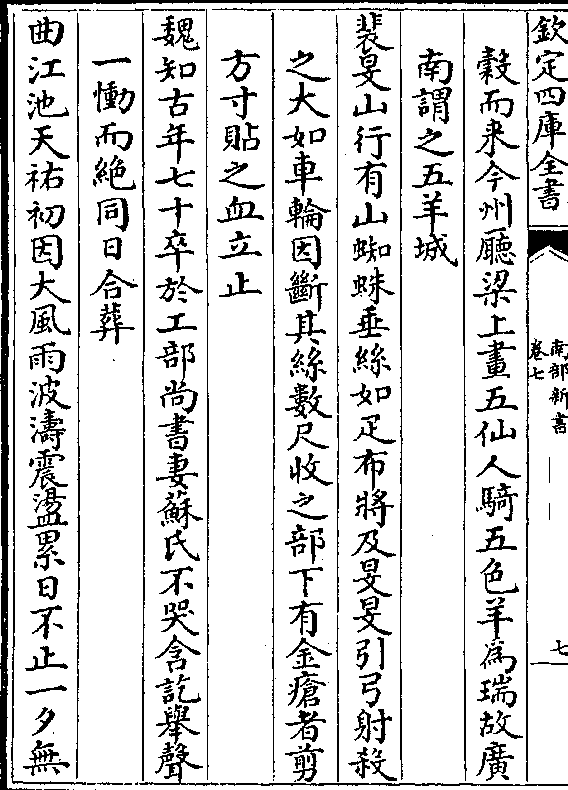 欽定四庫全書
南部新書
卷七
七
穀而来今州廳梁上畫五仙人騎五色羊為瑞故廣
南謂之五羊城
裴旻山行有山蜘蛛垂絲如疋布將及旻旻引弓射殺
之大如車輪因斷其絲數尺收之部下有金瘡者剪
方寸貼之血立止
魏知古年七十卒於工部尚書妻蘇氏不哭含訖舉聲
一慟而絶同日合葬
曲江池天祐初因大風雨波濤震盪累日不止一夕無